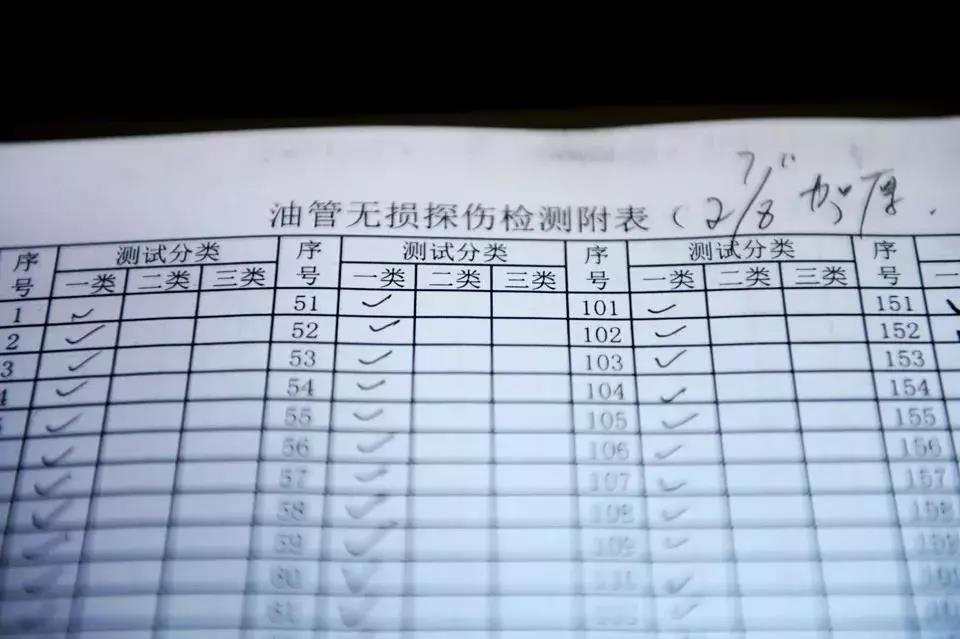 油管无损探伤检测附表（2 7/8" 加厚
序号 测试分类 序号 测试分类 序号 测试分类 序号
一类 二类 三类 一类 二类 三类 一类 二类 三类 一
1 ✓ 51 ✓ 101 ✓ 151 ✓
2 ✓ 52 ✓ 102 ✓ 152
3 ✓ 53 ✓ 103 ✓ 153
4 ✓ 54 ✓ 104 ✓ 154
✓ 55 ✓ 105 ✓ 155
✓ 56 ✓ 106 ✓ 156
✓ 57 ✓ 107 ✓ 157
✓ 58 ✓ 108 ✓ 158
✓ 59 ✓ 109 ✓ 159
✓ 60 ✓ 110 ✓
✓ 61 ✓